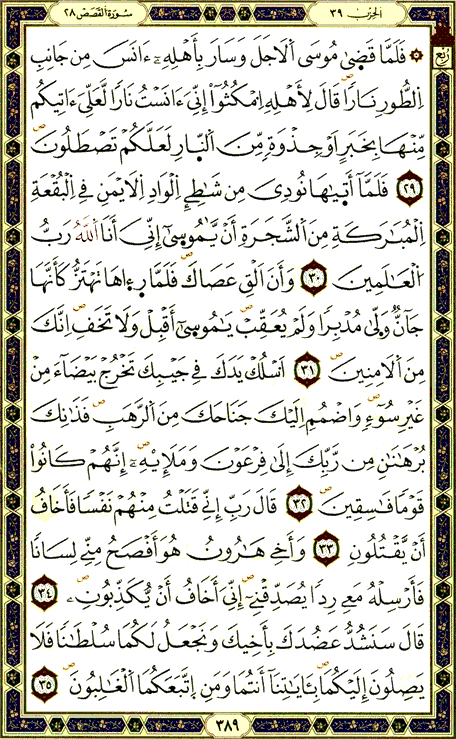 سُورَةُ الْقَصَصِ ٢٨
الحِزْبُ ٣٩
رُبُع
۞ فَلَمَّا قَضَىٰ مُوسَى اَلَاجَلَ وَسَارَ بِأَهْلِهِۦٓ ءَانَسَ مِن جَانِبِ
اِ۬لطُّورِ نَارًا قَالَ لِأَهْلِهِ اِ۟مْكُثُوٓاْ إِنِّيَ ءَانَسْتُ نَارًا لَّعَلِّيَ ءَاتِيكُم
مِّنْهَا بِخَبَرٍ اَوْ جِذْوَةٍ مِّنَ اَ۬لنَّارِ لَعَلَّكُمْ تَصْطَلُونَ
٢٩ فَلَمَّآ أَتَىٰهَا نُودِيَ مِن شَٰطِےِٕ اِ۬لْوَادِ اِ۬لَايْمَنِ فِے اِ۬لْبُقْعَةِ
اِ۬لْمُبَٰرَكَةِ مِنَ اَ۬لشَّجَرَةِ أَنْ يَّٰمُوسَىٰٓ إِنِّيَ أَنَا اَ۬للَّهُ رَبُّ
اُ۬لْعَٰلَمِينَ ٣٠ وَأَنَ اَلْقِ عَصَاكَ فَلَمَّا رِءِاهَا تَهْتَزُّ كَأَنَّهَا
جَآنٌّ وَلَّىٰ مُدْبِرًا وَلَمْ يُعَقِّبْ يَٰمُوسَىٰٓ أَقْبِلْ وَلَا تَخَفِ اِنَّكَ
مِنَ اَ۬لَامِنِينَ ٣١ اَ۟سْلُكْ يَدَكَ فِے جَيْبِكَ تَخْرُجْ بَيْضَآءَ مِنْ
غَيْرِ سُوٓءٍ وَاضْمُمِ اِلَيْكَ جَنَاحَكَ مِنَ اَ۬لرَّهَبِ فَذَٰنِكَ
بُرْهَٰنَٰنِ مِن رَّبِّكَ إِلَىٰ فِرْعَوْنَ وَمَلَإِيْهِۦٓ إِنَّهُمْ كَانُواْ
قَوْمًا فَٰسِقِينَ ٣٢ قَالَ رَبِّ إِنِّے قَتَلْتُ مِنْهُمْ نَفْسًا فَأَخَافُ
أَنْ يَّقْتُلُونِ ٣٣ وَأَخِے هَٰرُونُ هُوَ أَفْصَحُ مِنِّے لِسَانًا
فَأَرْسِلْهُ مَعِے رِدًا يُصَدِّقْنِےٓ إِنِّيَ أَخَافُ أَنْ يُّكَذِّبُونِۦ ٣٤
قَالَ سَنَشُدُّ عَضُدَكَ بِأَخِيكَ وَنَجْعَلُ لَكُمَا سُلْطَٰنًا فَلَا
يَصِلُونَ إِلَيْكُمَا بِـَٔايَٰتِنَآ أَنتُمَا وَمَنِ اِ۪تَّبَعَكُمَا اَ۬لْغَٰلِبُونَ ٣٥
٣٨٩